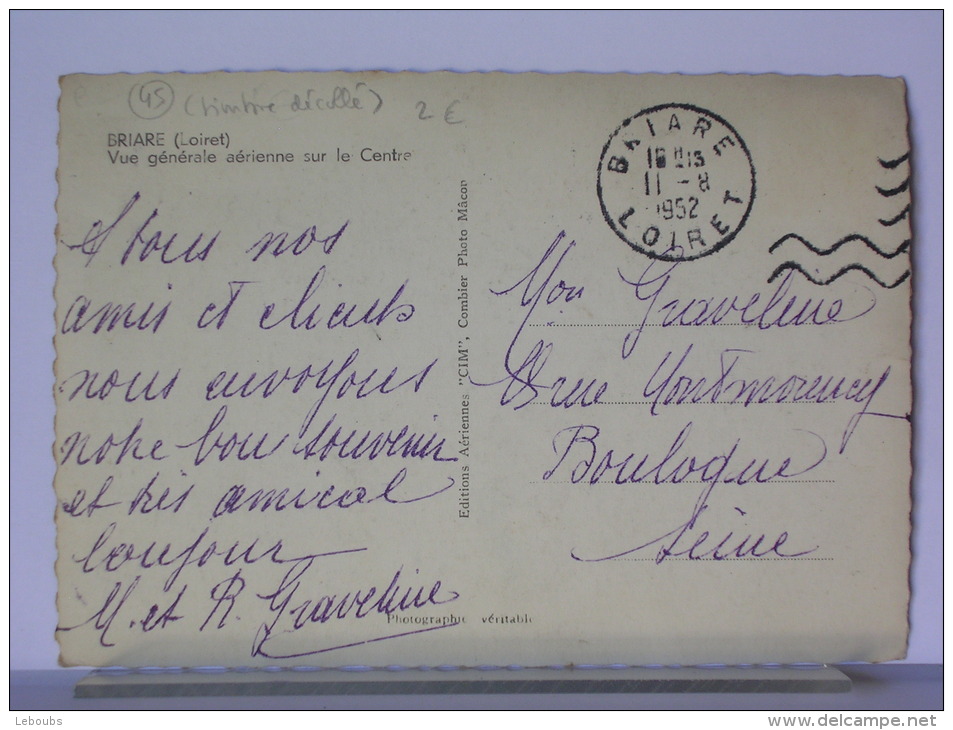 45 (timbre décollé) 2 €
BRIARE (Loiret)
Vue générale aérienne sur le Centre
A tous nos
amis et clients
nous envoyons
notre bon souvenir
et très amical
bonjour
M. et R. Graveline
Editions Aériennes "CIM", Combier Photo Mâcon
Photographie véritable
BRIARE
11 - 8
1952
LOIRET
Mon Graveline
rue Montmorency
Boulogne
Seine
Leboubs
www.delcampe.net